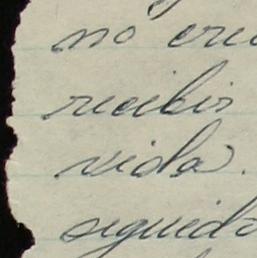 no cre
recibir
vida.
seguida